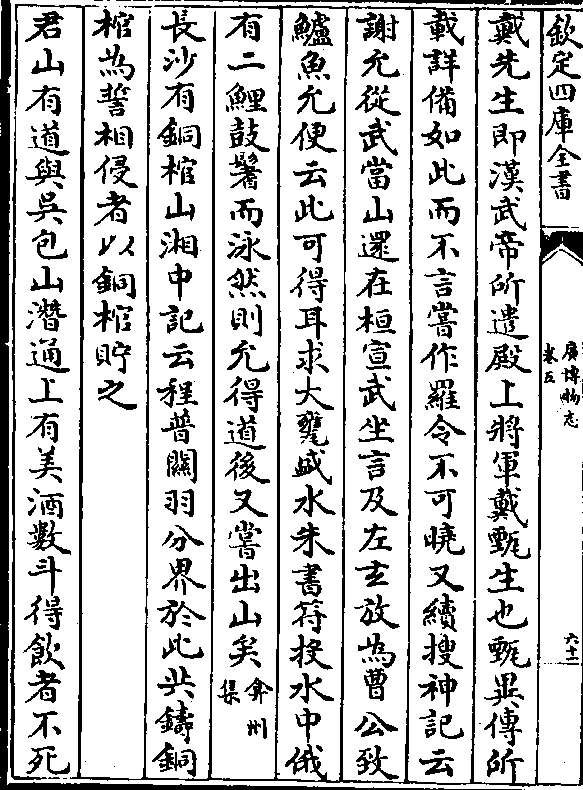 欽定四庫全書
廣博物志
卷五
六十一
戴先生即漢武帝所遣殿上將軍戴甄生也甄異傳所
載詳備如此而不言嘗作羅令不可曉又續搜神記云
謝允從武當山還在桓宣武坐言及左𤣥放為曹公致
鱸魚允便云此可得耳求大甕盛水朱書符投水中俄
有二鯉鼓鬐而泳然則允得道後又嘗出山矣弇州集
長沙有銅棺山湘中記云程普關羽分界於此共鑄銅
棺為誓相侵者以銅棺貯之
君山有道與吳包山潛通上有美酒數斗得飲者不死